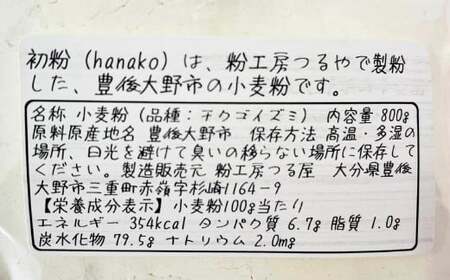 初粉(hanako)は、粉工房つるやで製粉
した、豊後大野市の小麦粉です。
名称 小麦粉(品種:チクゴイズミ) 内容量 800g
原料原産地名 豊後大野市 保存方法 高温・多湿の
場所、日光を避けて臭いの移らない場所に保存して
ください。製造販売元 粉工房つる屋 大分県豊後
大野市三重町赤嶺字杉崎1164-9
【栄養成分表示】小麦粉100g当たり
エネルギー 354kcal タンパク質 6.7g 脂質 1.0g
炭水化物 79.5g ナトリウム 2.0mg